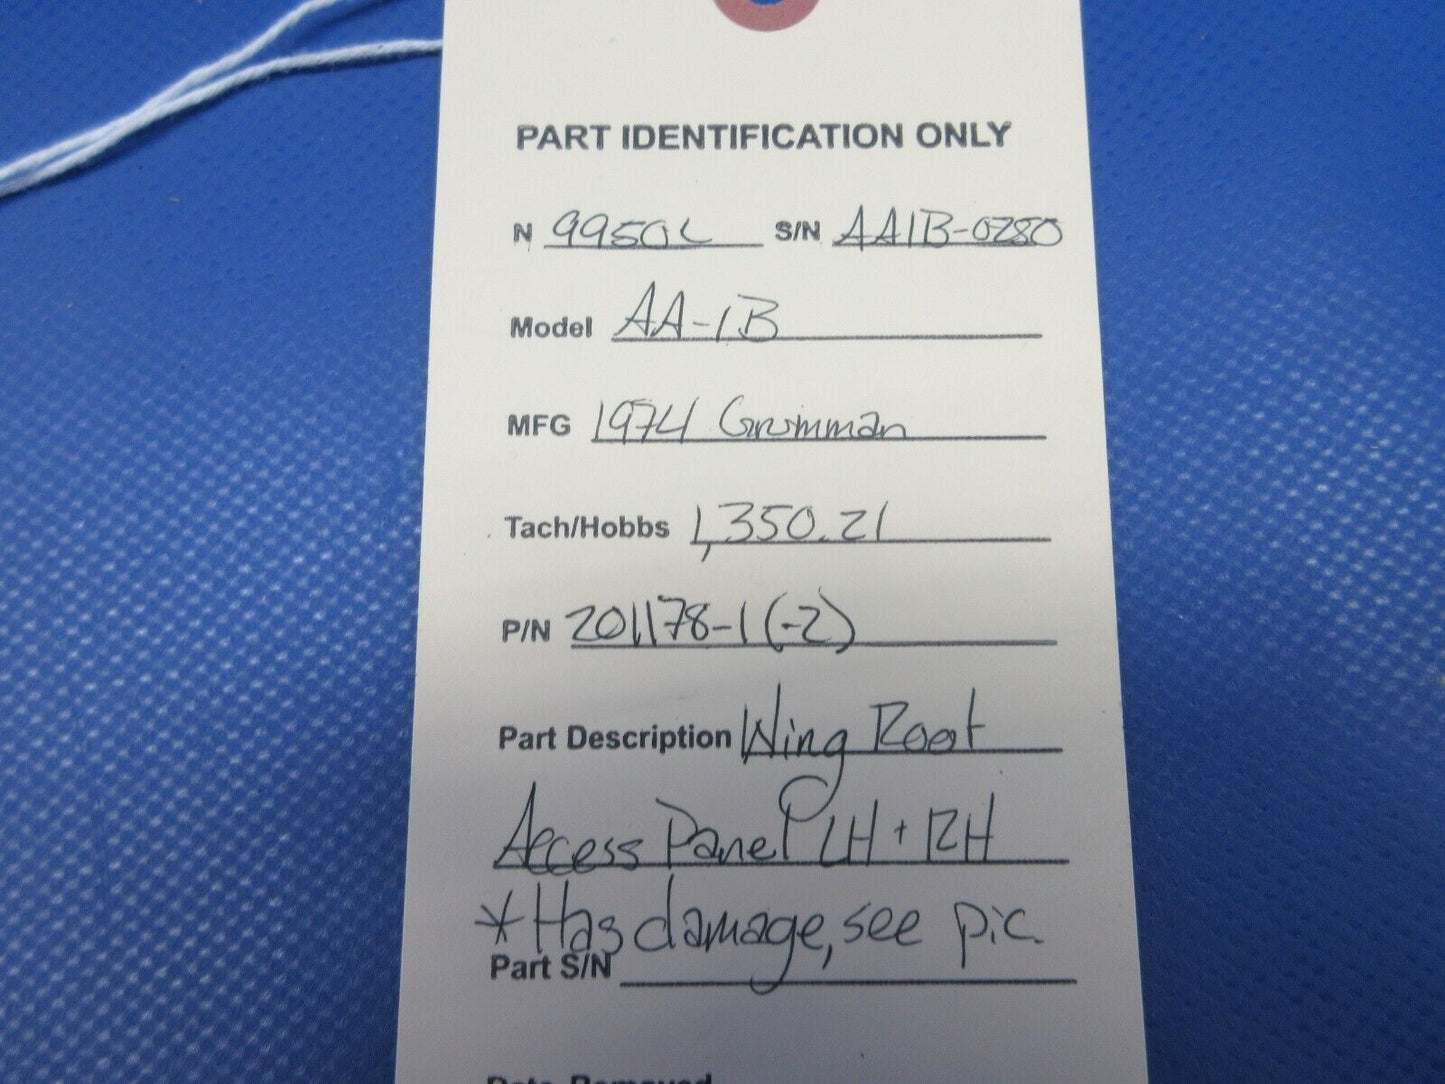 PART IDENTIFICATION ONLY
N 9950L S/N AA1B-0280
Model AA-1B
MFG 1974 Grumman
Tach/Hobbs 1,350.21
P/N 201178-1 (-2)
Part Description Wing Root
Access Panel LH + RH
*Has damage, see pic.
Part S/N
Date Removed